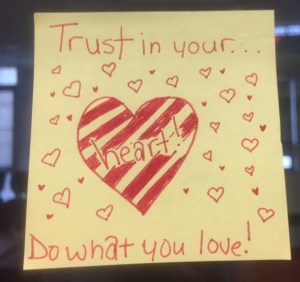 Trust in your...
heart!
Do what you love!